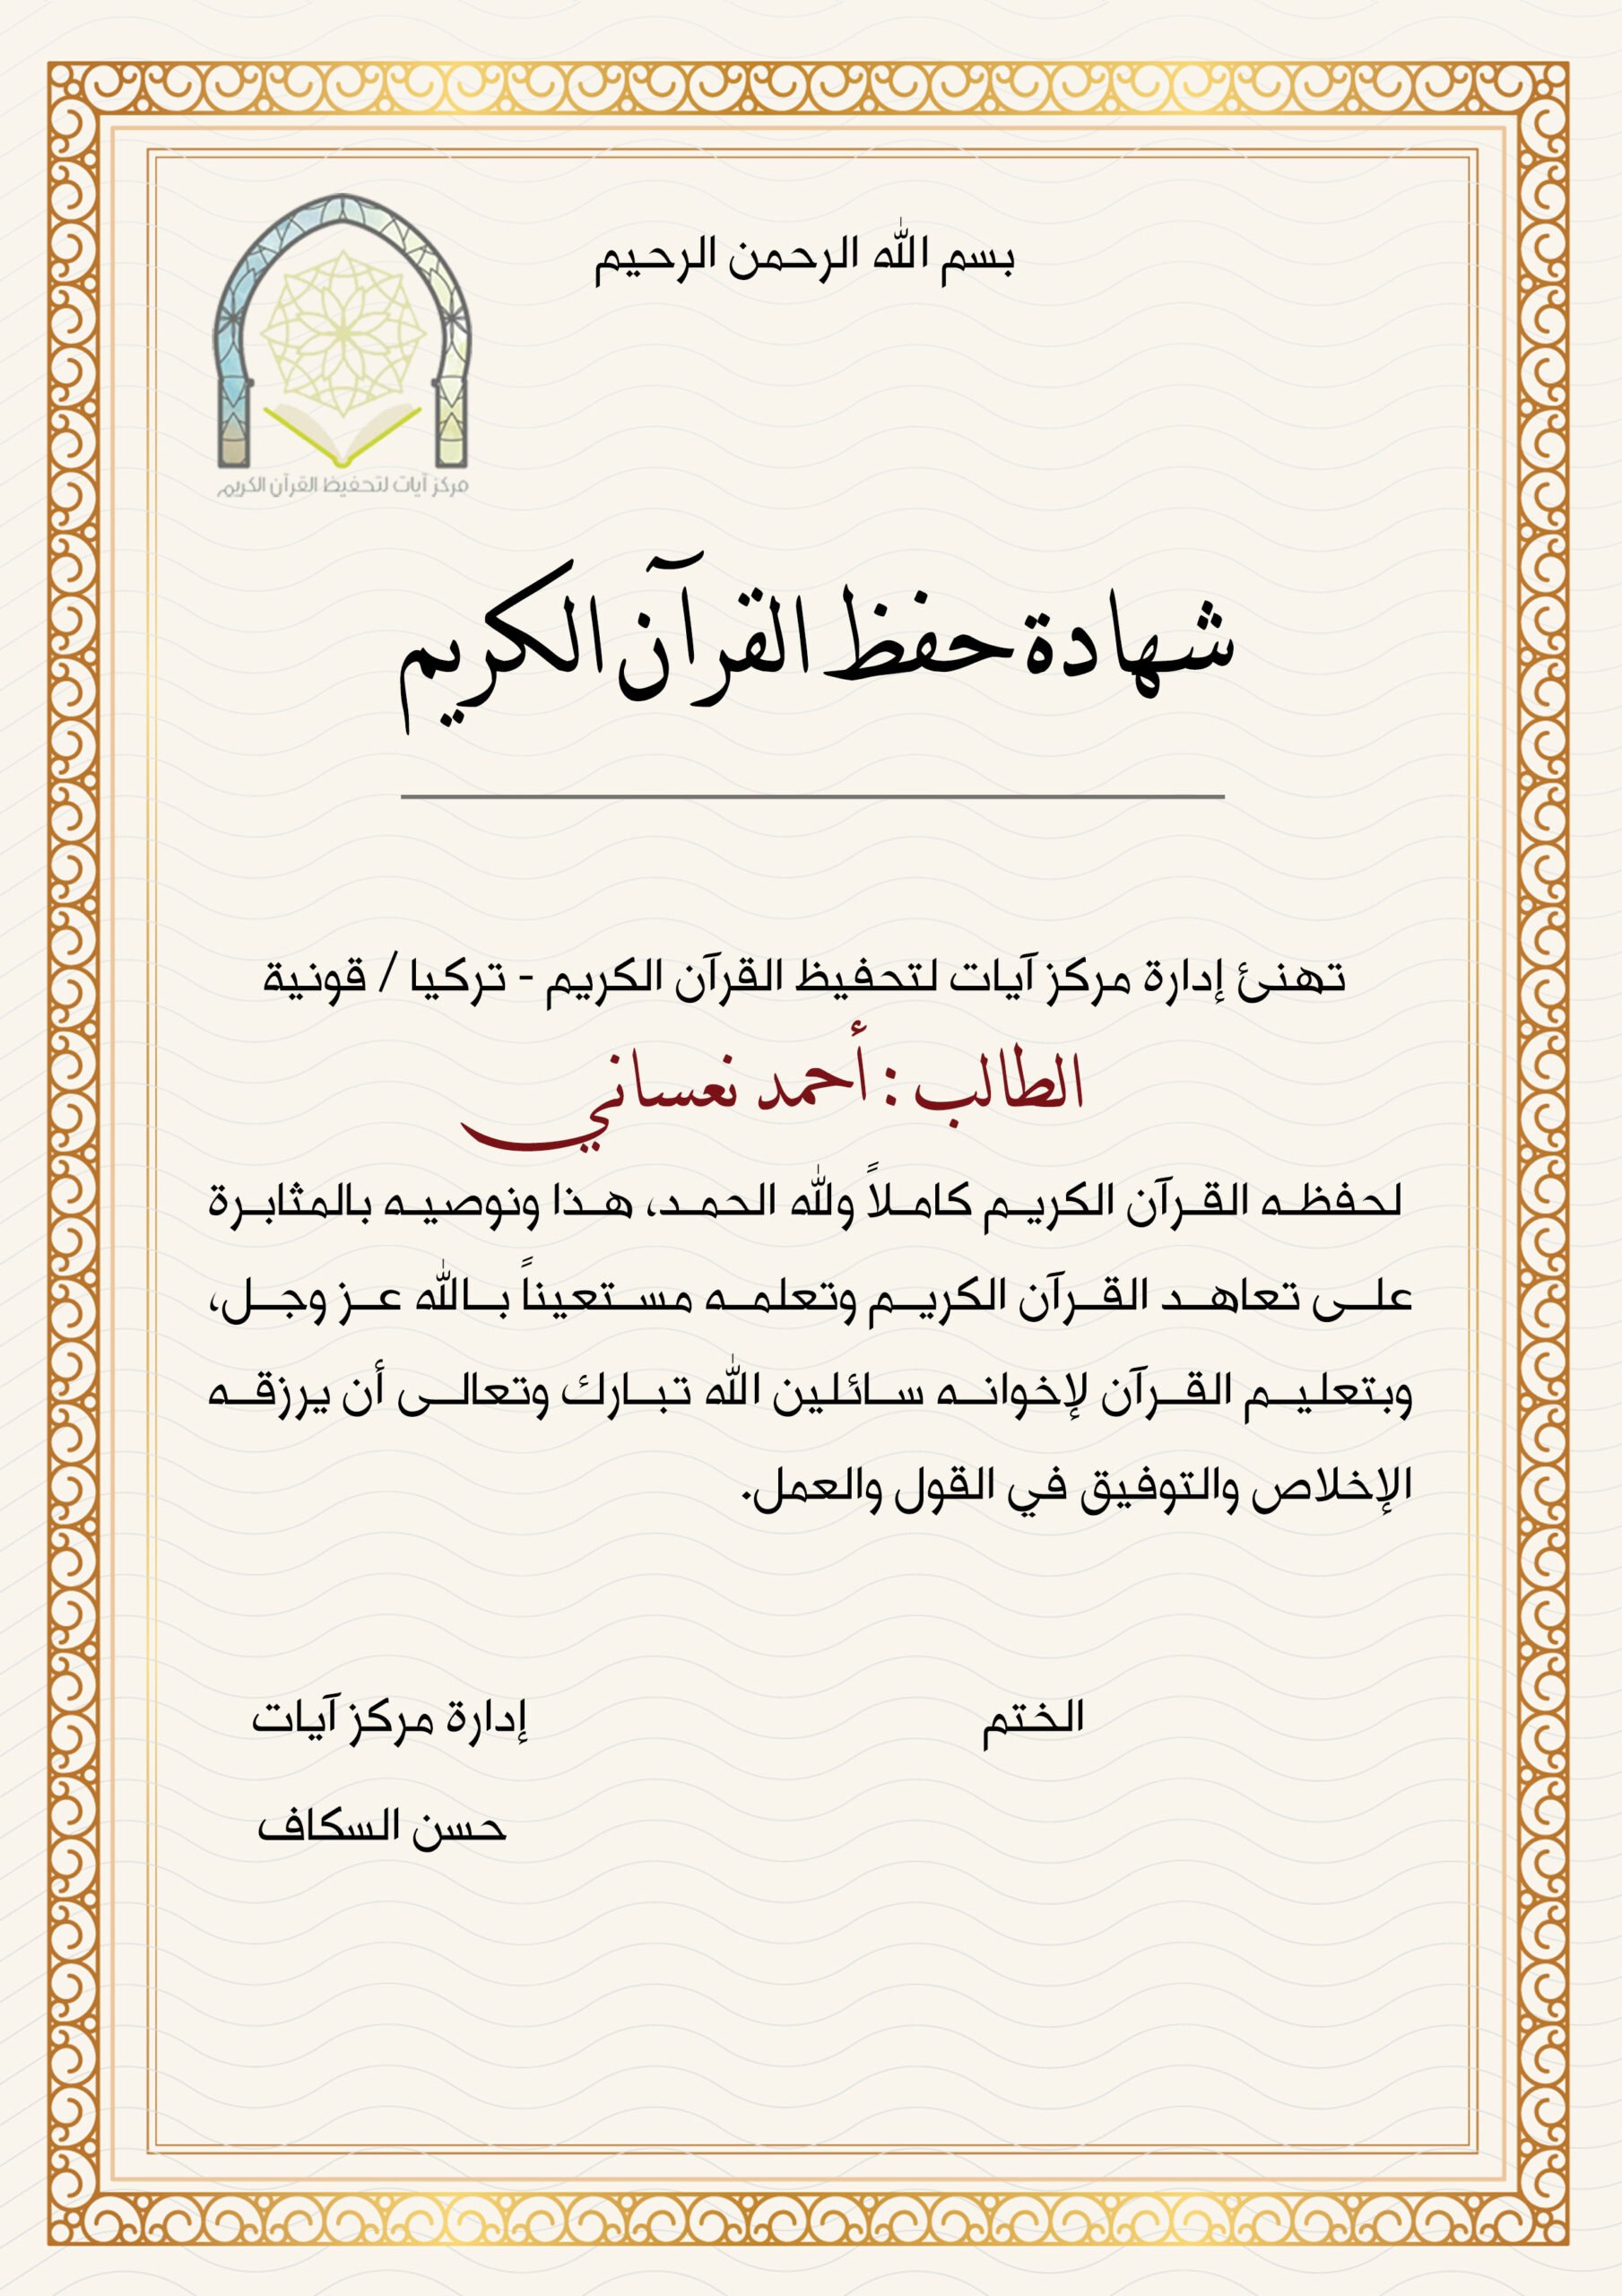 بسم الله الرحمن الرحيم
مركز آيات لتحفيظ القرآن الكريم
شهادة حفظ القرآن الكريم
تهنئ إدارة مركز آيات لتحفيظ القرآن الكريم - تركيا / قونية
الطالب : أحمد نعساني
لحفظـه القـرآن الكريـم كامـلاً ولله الحمـد، هـذا ونوصيـه بالمثابـرة
علـى تعاهـد القـرآن الكريـم وتعلمـه مسـتعيناً بـالله عـز وجـل،
وبتعليـم القـرآن لإخوانـه سـائلين الله تبـارك وتعالـى أن يرزقـه
الإخلاص والتوفيق في القول والعمل.
الختم
إدارة مركز آيات
حسن السكاف